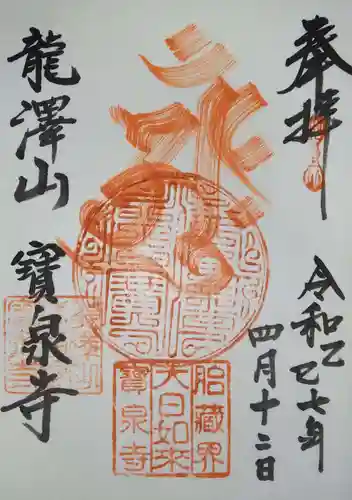 奉拝
令和乙巳七年
四月十二日
胎蔵界
大日如来
寶泉寺
龍澤山
寶泉寺